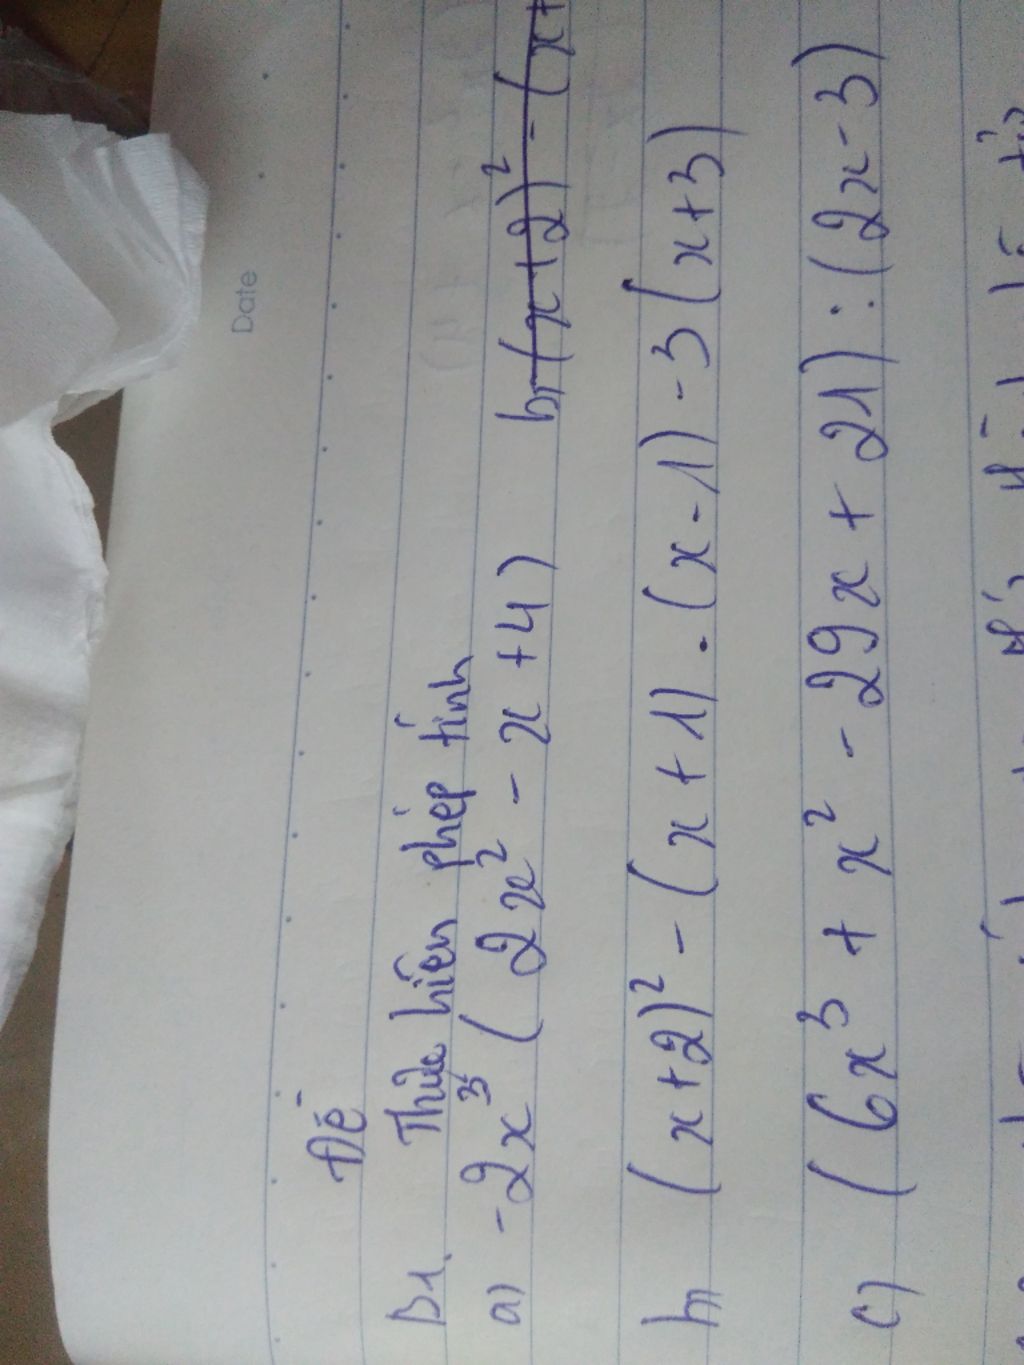 Date
Đề
B1. Thực hiện phép tính
a) -2x³ ( 2x² - x + 4) b) (x+2)² - (x+
b) (x+2)² - (x+1) . (x-1) - 3(x+3)
c) ( 6x³ + x² - 29x + 21) : (2x-3)